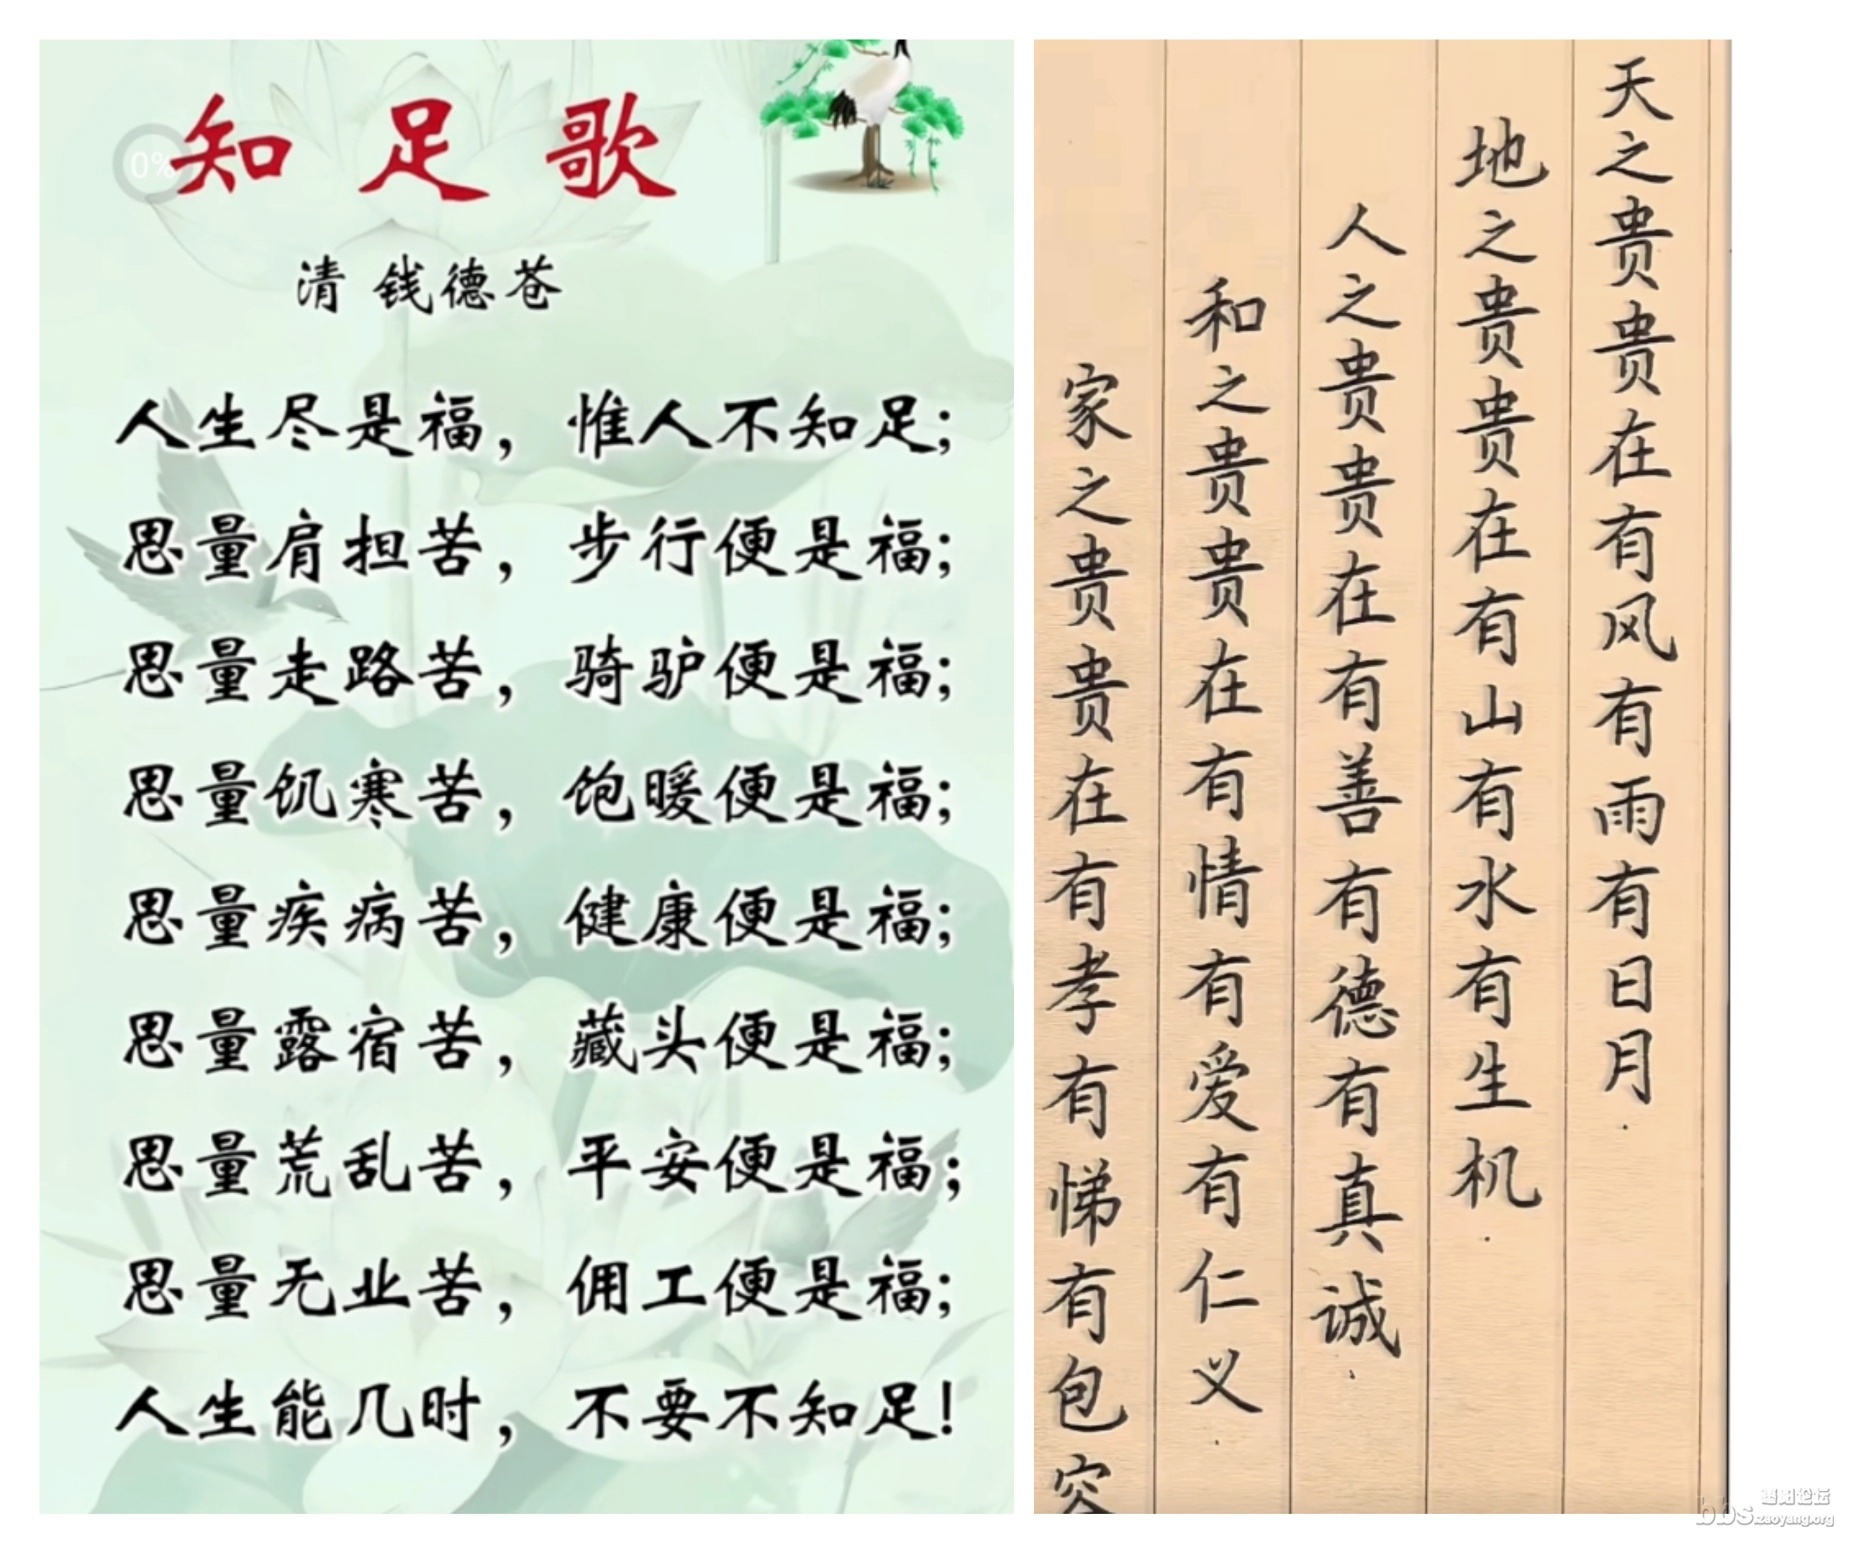 0%
知足歌
清 钱德苍
人生尽是福，惟人不知足；
思量肩担苦，步行便是福；
思量走路苦，骑驴便是福；
思量饥寒苦，饱暖便是福；
思量疾病苦，健康便是福；
思量露宿苦，藏头便是福；
思量荒乱苦，平安便是福；
思量无业苦，佣工便是福；
人生能几时，不要不知足！
天之贵贵在有风有雨有日月.
地之贵贵在有山有水有生机.
人之贵贵在有善有德有真诚.
和之贵贵在有情有爱有仁义.
家之贵贵在有孝有悌有包容
枣阳论坛
bbs.zaoyang.org